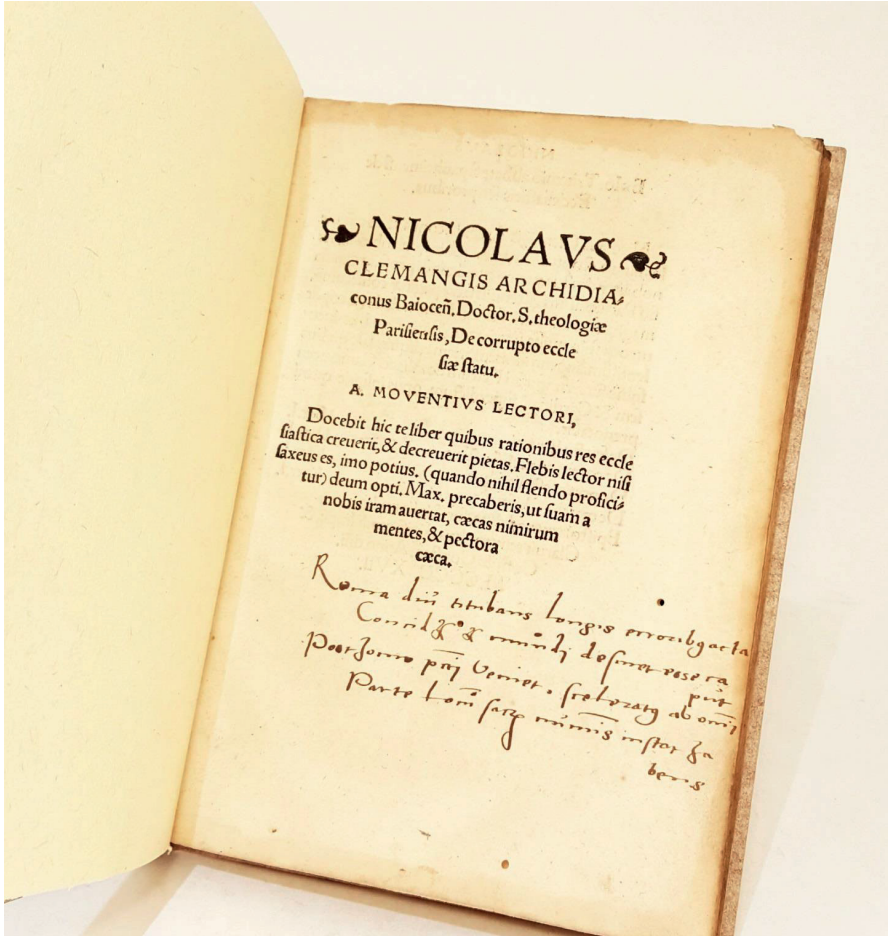 NICOLAVS
CLEMANGIS ARCHIDIA⸗
conus Baioceñ. Doctor. S. theologiæ
Parisiensis, De corrupto eccle
siæ statu.
A. MOVENTIVS LECTORI,
Docebit hic te liber quibus rationibus res eccle
siastica creuerit, & decreuerit pietas. Flebis lector nisi
saxeus es, imo potius. (quando nihil flendo profici⸗
tur) deum opti. Max. precaberis, ut suam a
nobis iram auertat, cæcas nimirum
mentes, & pectora
cæca.
Roma diū titubans longis erroribꝯ acta
mūndj desinet esse ca
put
Veniet. sceleratꝯ ab omnj
Parte instat ha
bens